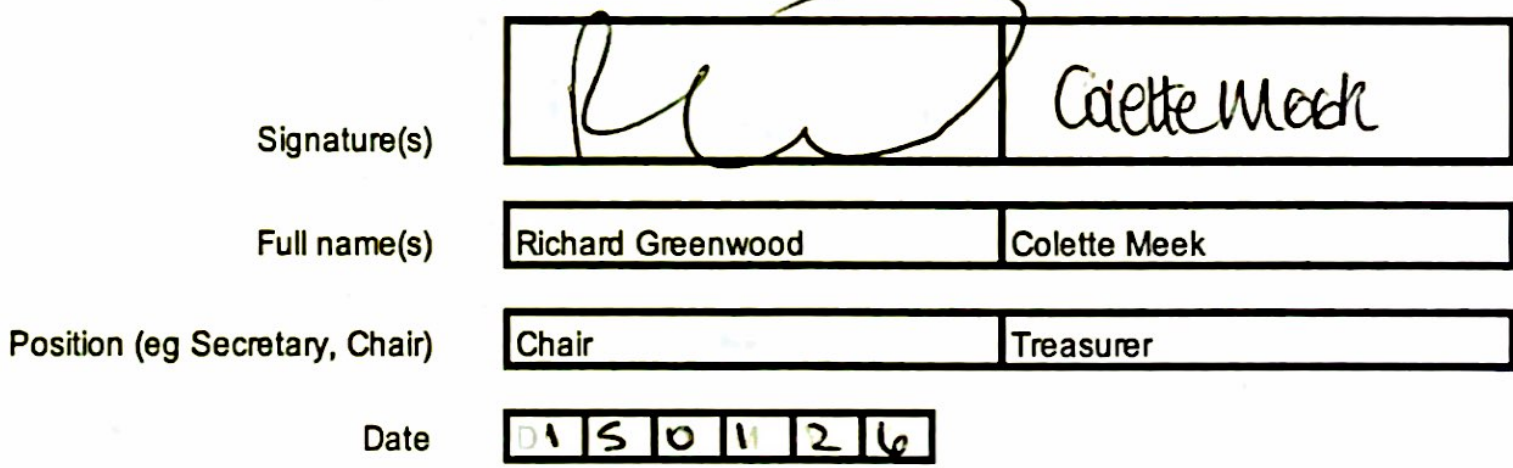 Signature(s) Colette Meek
Full name(s) Richard Greenwood Colette Meek
Position (eg Secretary, Chair) Chair Treasurer
Date 1 5 0 1 2 6